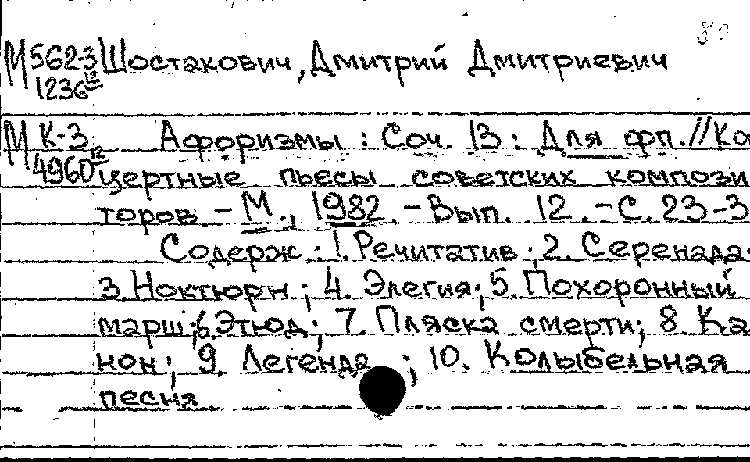 М 562-3 Шостакович, Дмитрий Дмитриевич
1236 12
М К-3 Афоризмы : Соч. 13 : Для фп. // Ко
4960 12 цертные пьесы советских компози
торов – М., 1982. – Вып. 12. – С. 23-3
Содерж.: 1. Речитатив; 2. Серенада
3. Ноктюрн; 4. Элегия; 5. Похоронный
марш; 6. Этюд; 7. Пляска смерти; 8. Ка
нон; 9. Легенда; 10. Колыбельная
песня